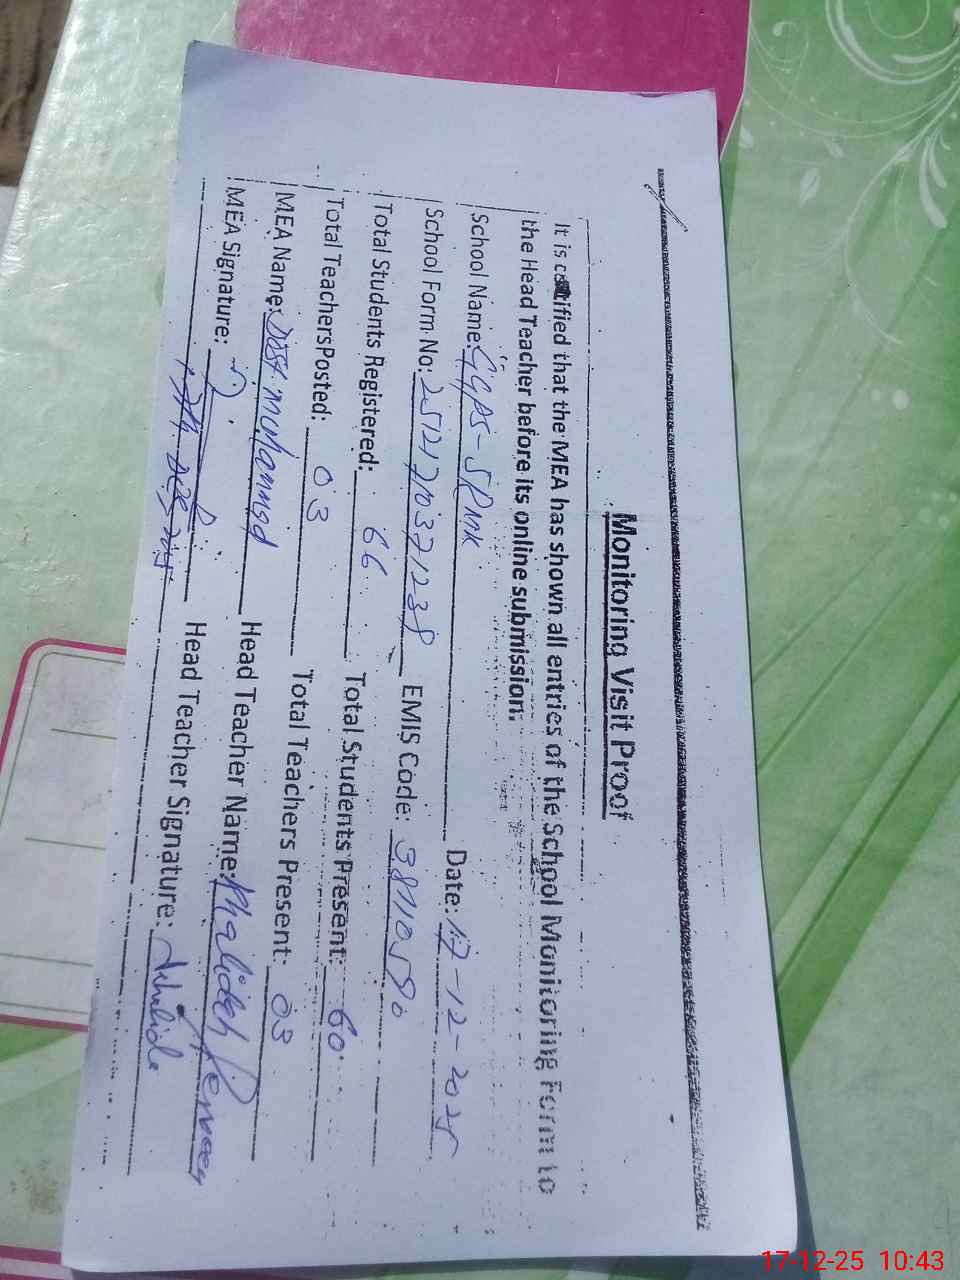 Monitoring Visit Proof
It is certified that the MEA has shown all entries of the School Monitoring Form to
the Head Teacher before its online submission.
School Name: GGPS - SPink Date: 17-12-2025
School Form No: 25121710371238 EMIS Code: 38110590
Total Students Registered: 66 Total Students Present: 60
Total TeachersPosted: 03 Total Teachers Present: 03
MEA Name: Dost Mohammad Head Teacher Name: Khalidah Perveen
MEA Signature: Head Teacher Signature: Khalida
17th Dec, 2025
17-12-25 10:43